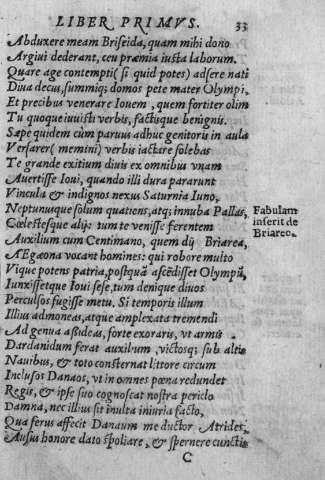 LIBER PRIMVS. 33
Abduxere meam Briseida, quam mihi dono
Argiui dederant, ceu præmia iusta laborum.
Quare age contempti (si quid potes) adsere nati
Diua decus, summiq; domos pete mater Olympi,
Et precibus venerare Iouem, quem fortiter olim
Tu quoque iuuisti verbis, factisque benignis.
Sæpe quidem cùm paruus adhuc genitoris in aula
Versarer (memini) verbis iactare solebas
Te grande exitium diuis ex omnibus vnam
Auertisse Ioui, quando illi dura pararunt
Vincula & indignos nexus Saturnia Iuno,
Neptunusque solum quatiens, atq; innuba Pallas,
Cœlestesque alij: tum te venisse ferentem
Auxilium cum Centimano, quem dij Briarea,
AEgæona vocant homines: qui robore multo
Vique potens patria, postquā ascēdisset Olympū,
Iunxissetque Ioui sese, tum denique diuos
Perculsos fugisse metu. Si temporis illum
Illius admoneas, atque amplexata tremendi
Ad genua aßideas, forte exoraris, vt armis
Dardanidum ferat auxilium, victosq; sub altis
Nauibus, & toto consternat littore circum
Inclusos Danaos, vt in omnes pœna redundet
Regis, & ipse suo cognoscat nostra periclo
Damna, nec illius sit inulta iniuria facto,
Qua ferus affecit Danaum me ductor Atrides,
Ausus honore dato spoliare, & spernere cunctis
C
Fabulam
inserit de
Briareo.